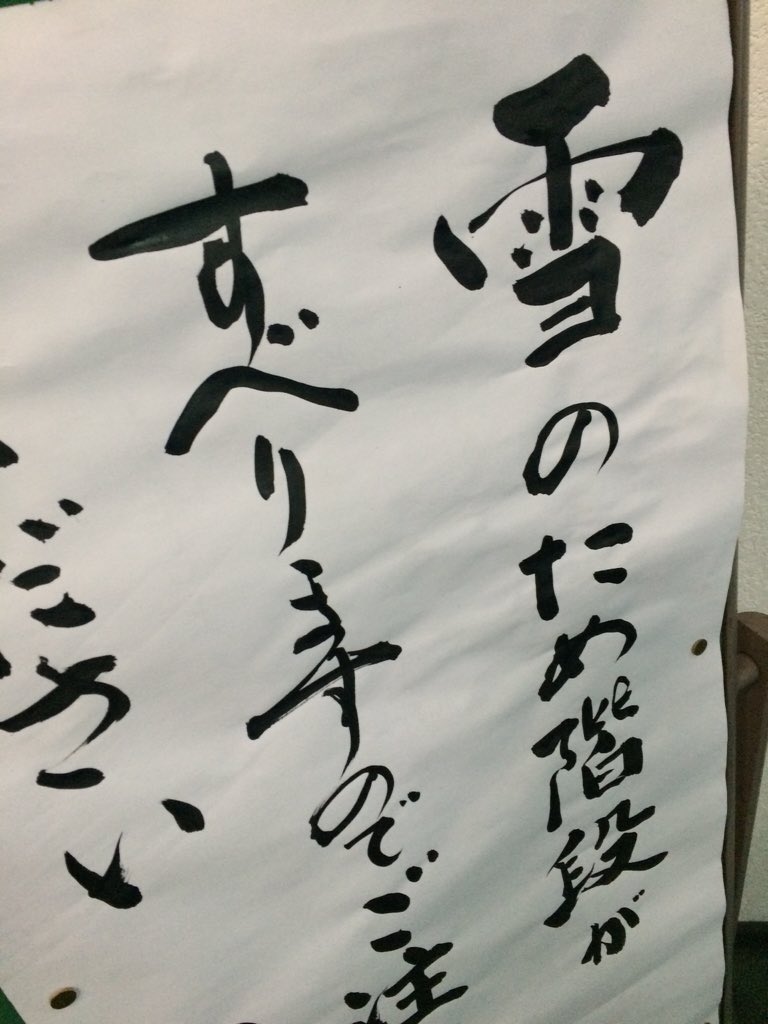 雪のため階段が
すべりますのでご注
ださい